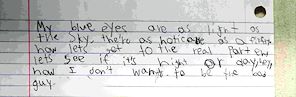 My blue eyes are as light as
the sky, there as noticable as a
now lets get to the real part and
lets see if its night or day, hey
now I don't want to be the bad
guy.